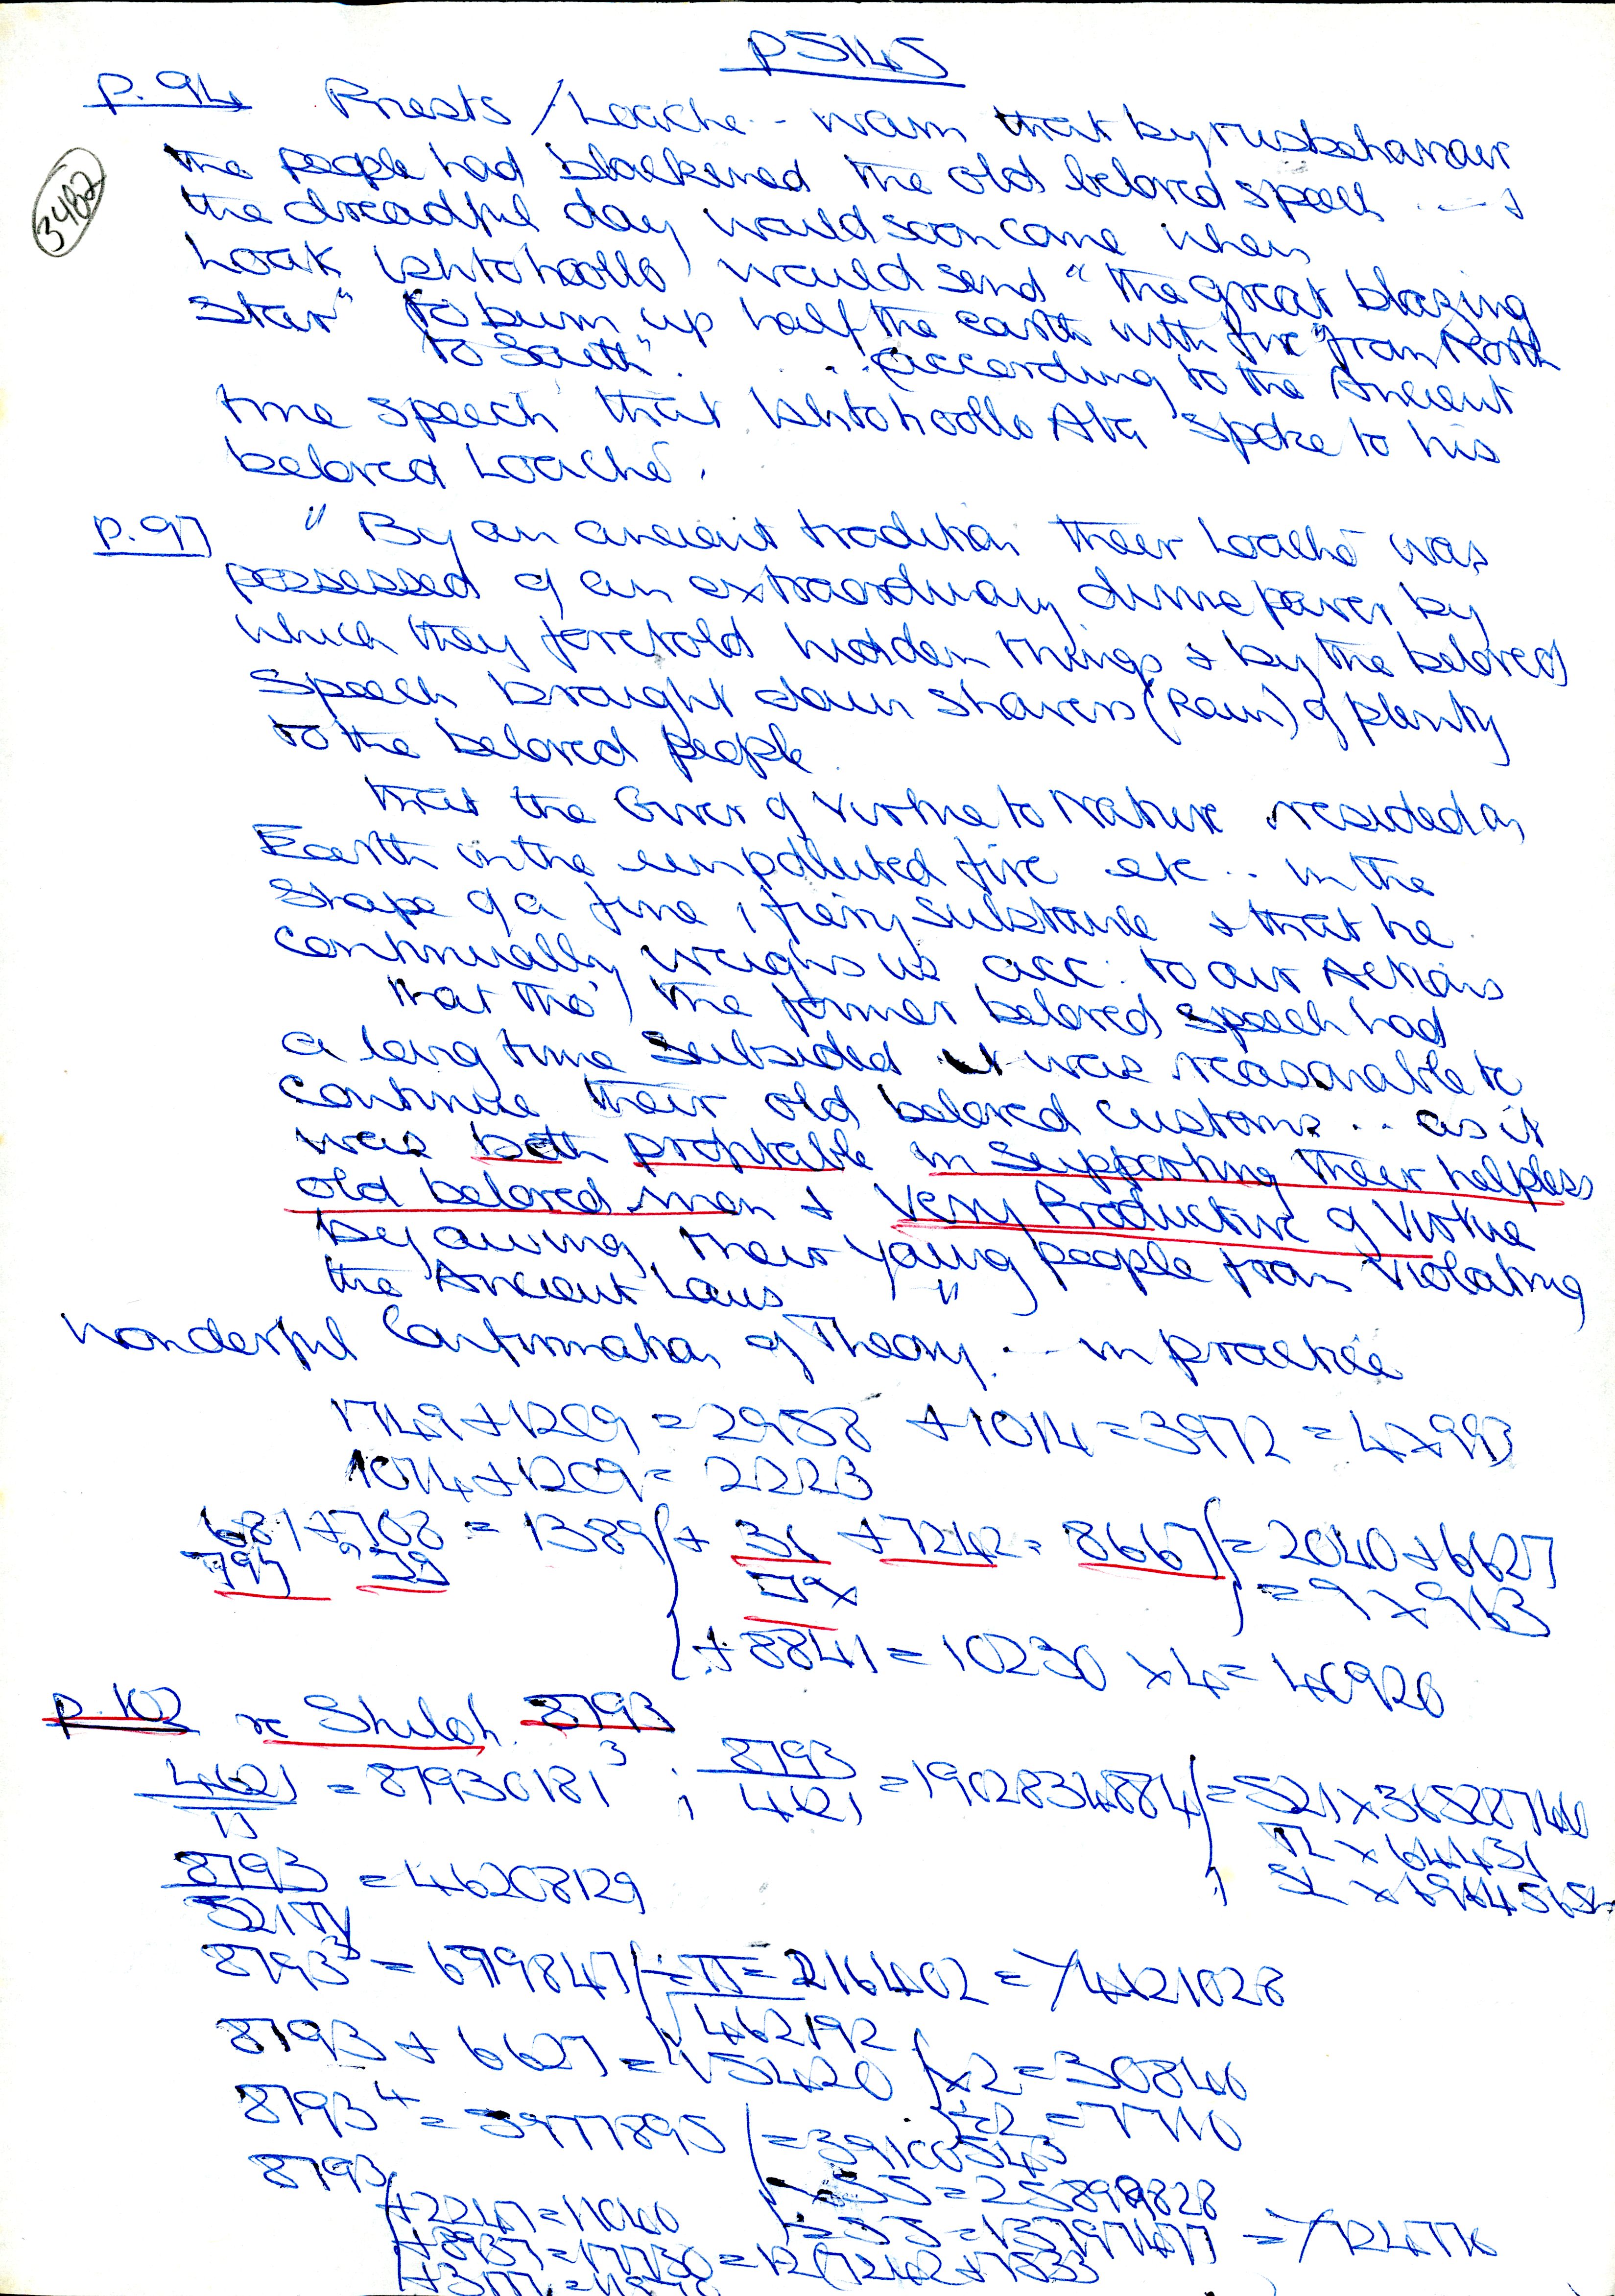 P5145
P.94 Priests / Loache .. warn that by misbehaviour
3482
the people had blackened the old beloved speech .. &
the dreadful day would soon come when
Loak Ishtohoollo would send "the great blazing
Star" to burn up half the earth with fire "from North
to South". ... (according to the Ancient
time speech that Ishtohoollo Aba spoke to his
beloved Loaché.
P.97 "By an ancient tradition their Loaché was
possessed of an extraordinary divine power by
which they foretold hidden things & by the beloved
speech brought down showers (Rain) of plenty
to the beloved people.
that the Giver of Virtue to Nature resided on
Earth in the unpolluted fire etc .. in the
shape of a fine, fiery substance & that he
continually weighs us acc: to our Actions
that tho', the former beloved speech had
a long time subsided it was reasonable to
continue their old beloved customs .. as it
was both profitable in supporting their helpless
old beloved men & Very Productive of Virtue
by awing their young people from violating
the Ancient Laws "
Wonderful Confirmation of Theory ... in practice
1749+1209 = 2958 +1014 = 3972 = 4×993
1014+1209 = 2223
681+708 = 1389 + 36 +7242 = 8667 = 2040+6627
= 9×963
+8841 = 10230 ×4 = 40920
p.102 re Shiloh 8793
4621 = 87930181³ ; 8793
4621 = 1902834884
8793 = 46208129
8793³ = 679847 ÷ π = 216402 = 1/4621028
462192
8793 + 6627 = 15420 ×2 = 30840
÷2 = 7710
8793⁴ = 5977895
8793
+2247 = 11040
+8937 = 17730